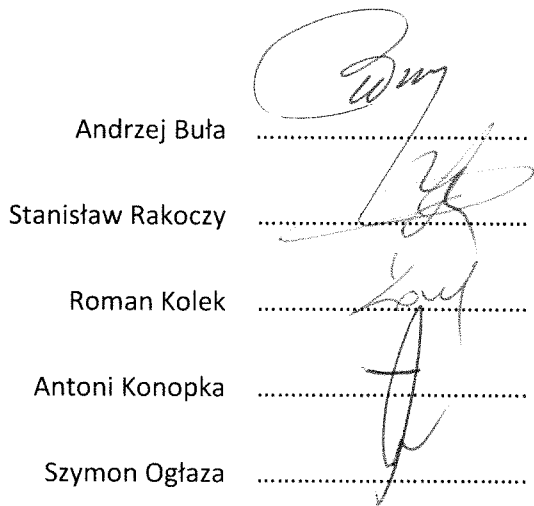 Andrzej Buła ..............................
Stanisław Rakoczy ..............................
Roman Kolek ..............................
Antoni Konopka ..............................
Szymon Ogłaza ..............................